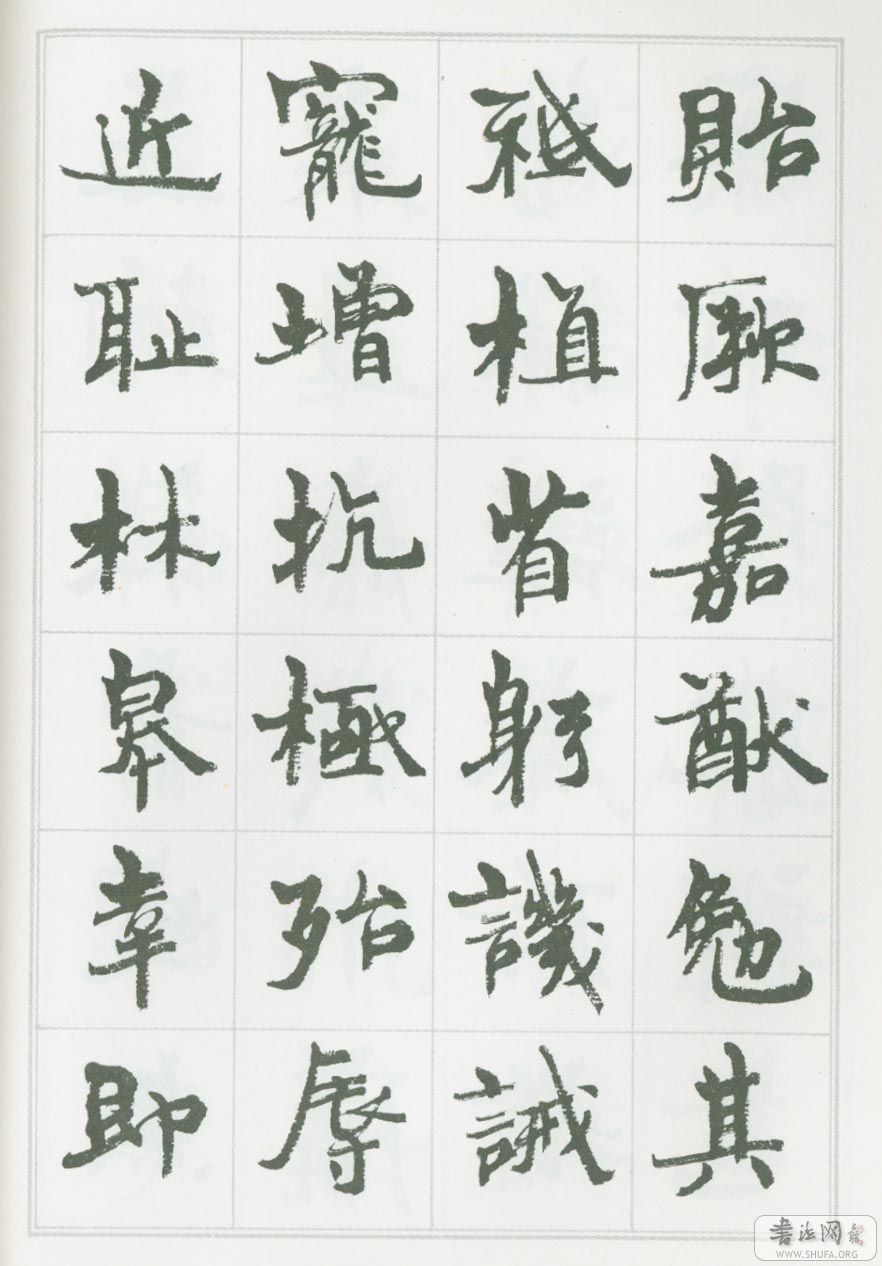 貽厥嘉猷勉其
祗植省躬譏誡
寵增抗極殆辱
近耻林皋幸即
書法网
WWW.SHUFA.ORG